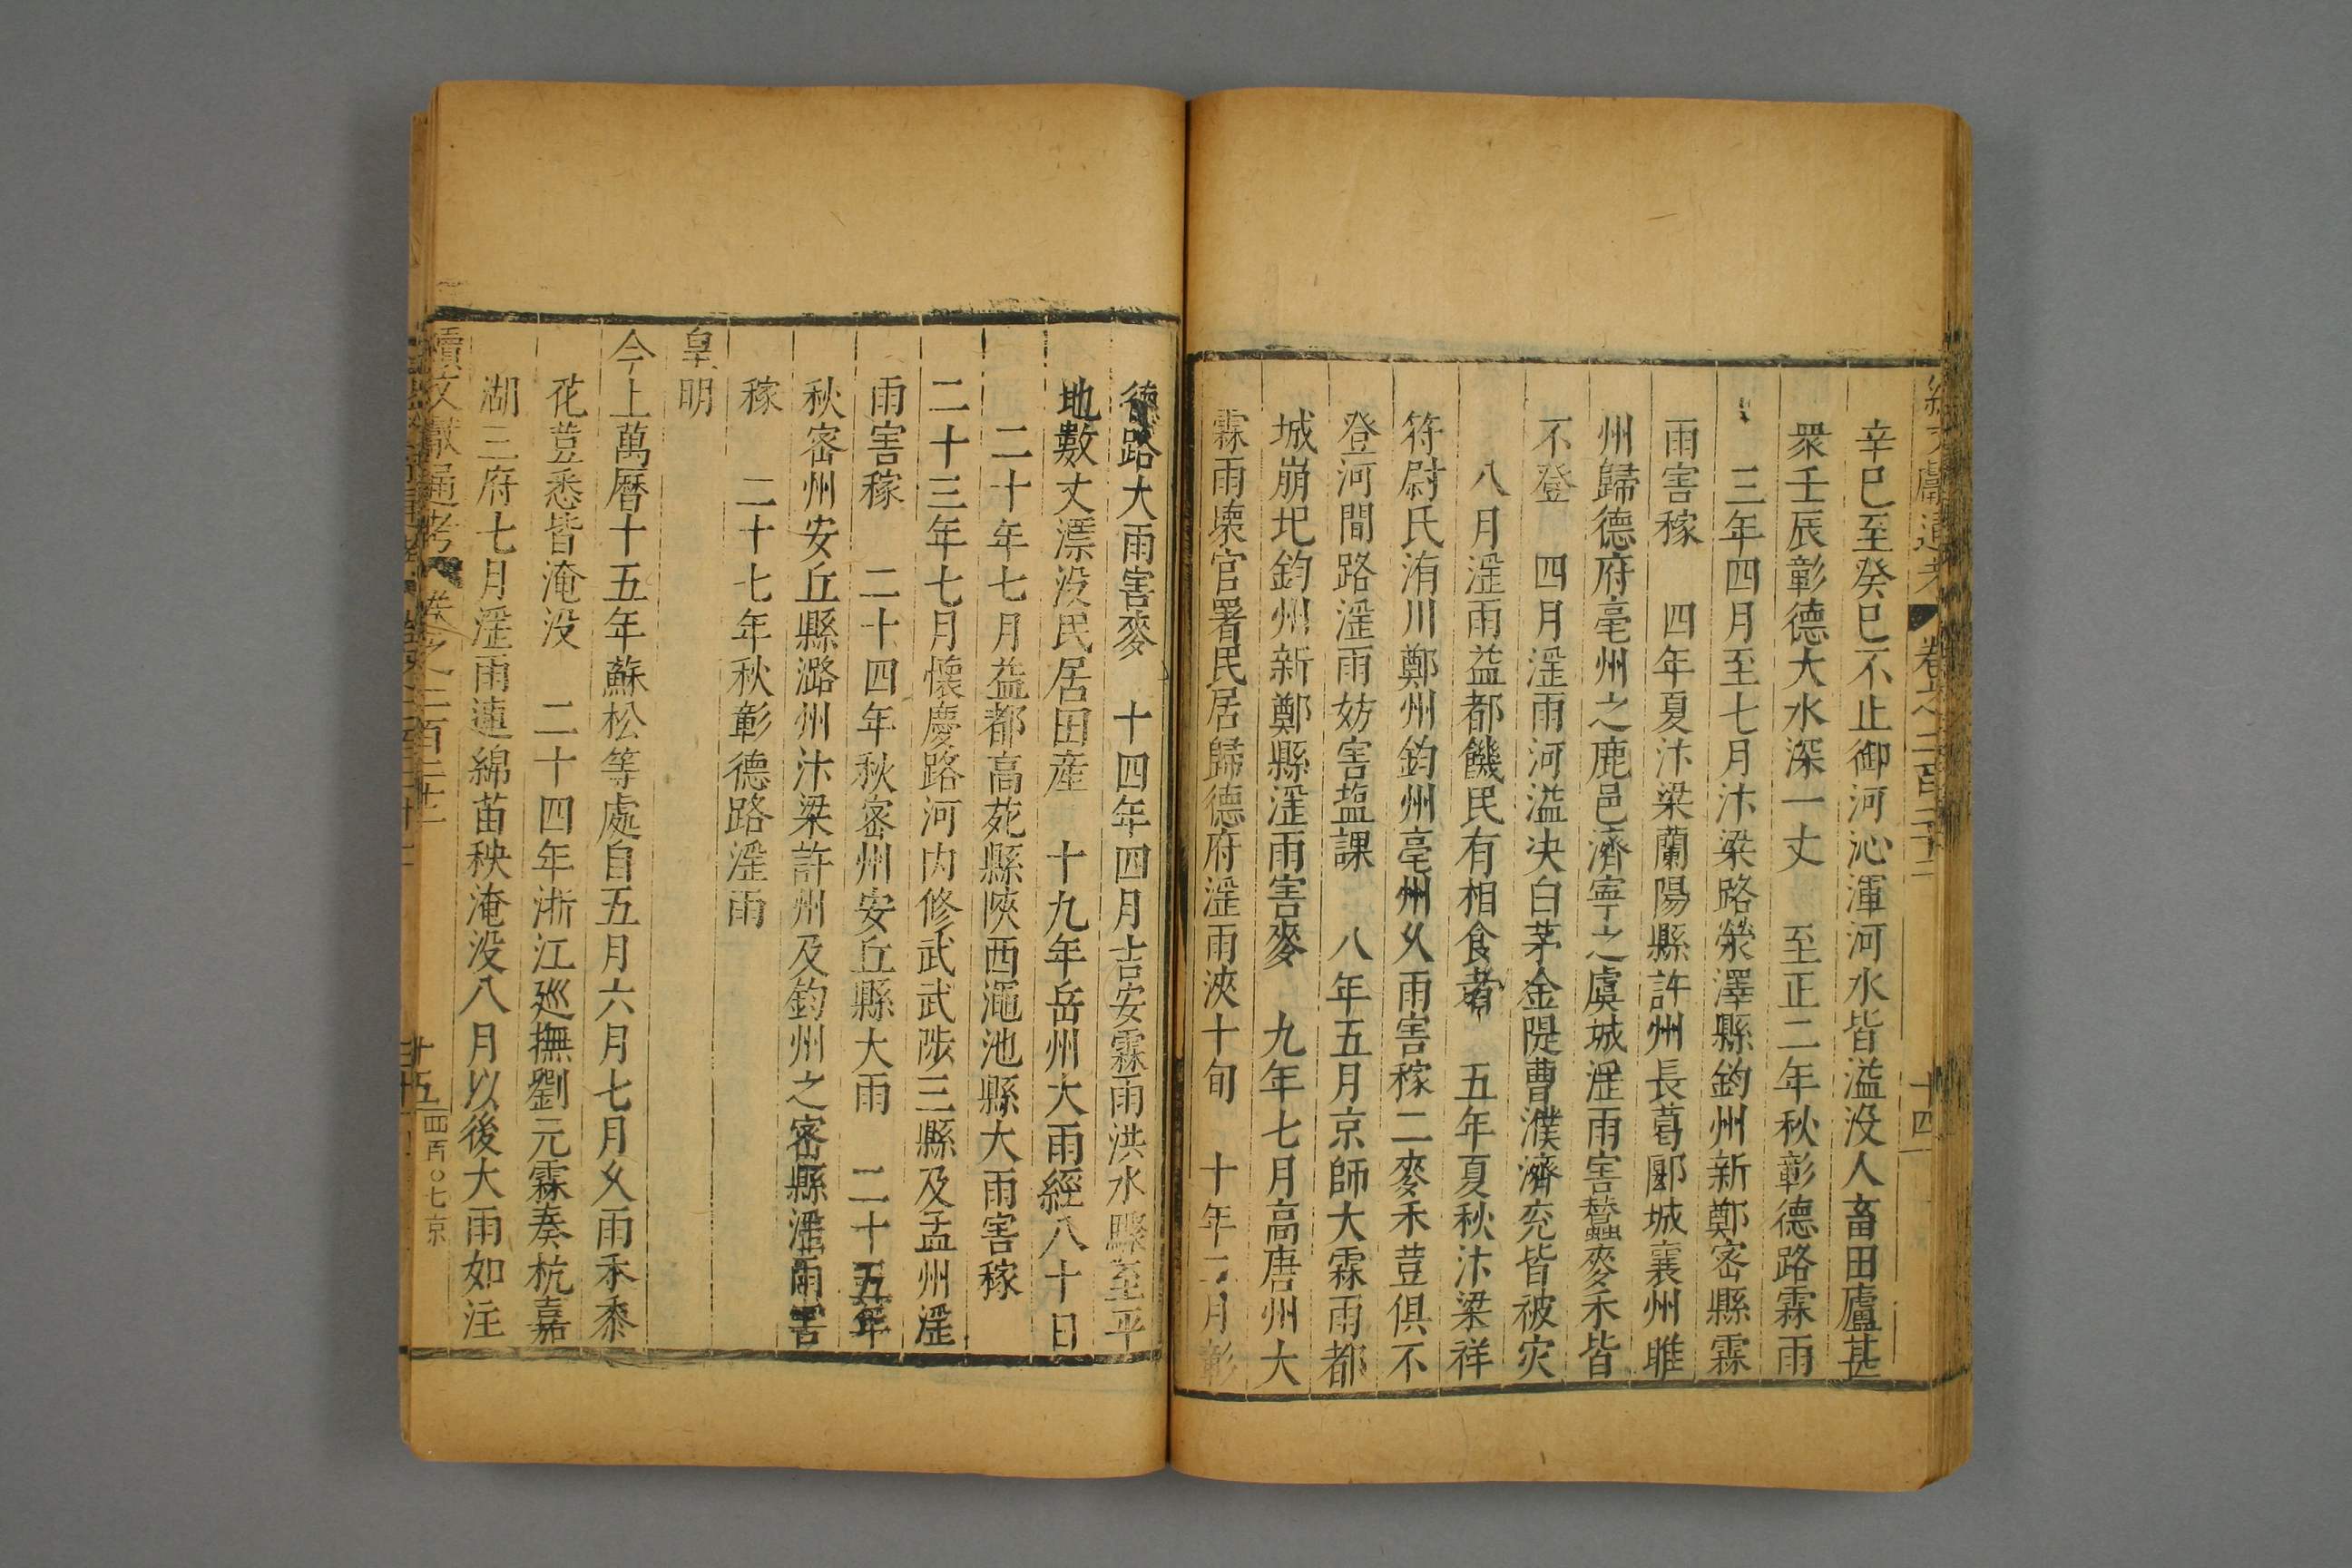 辛巳至癸巳不止御河沁渾河水皆溢没人畜田廬甚
衆壬辰彰德大水深一丈　至正二年秋彰德路霖雨
三年四月至七月汴梁路滎澤縣鈞州新鄭密縣霖
雨害稼　四年夏汴梁蘭陽縣許州長葛郾城襄州睢
州歸德府亳州之鹿邑濟寧之虞城淫雨害蠶麥禾皆
不登　四月淫雨河溢決白茅金隄曹濮濟兖皆被灾
八月淫雨益都饑民有相食者　五年夏秋汴梁祥
符尉氏洧川鄭州鈞州亳州久雨害稼二麥禾荳俱不
登河間路淫雨妨害塩課　八年五月京師大霖雨都
城崩圯鈞州新鄭縣淫雨害麥　九年七月高唐州大
霖雨壞官署民居歸德府淫雨浹十旬　十年二月彰
續文獻通考　卷之二百二十二　十四
德路大雨害麥　十四年四月吉安霖雨洪水驟至平
地數丈漂没民居田産　十九年岳州大雨經八十日
二十年七月益都高苑縣陜西澠池縣大雨害稼
二十三年七月懷慶路河内修武武陟三縣及孟州淫
雨害稼　二十四年秋密州安丘縣大雨　二十五年
秋密州安丘縣潞州汴梁許州及鈞州之密縣淫雨害
稼　二十七年秋彰德路淫雨
皇明
今上萬曆十五年蘇松等處自五月六月七月久雨禾黍
花荳悉皆淹没　二十四年浙江廵撫劉元霖奏杭嘉
湖三府七月淫雨連綿苗秧淹没八月以後大雨如注
續文獻通考　卷之二百二十二　十五　四百〇七京